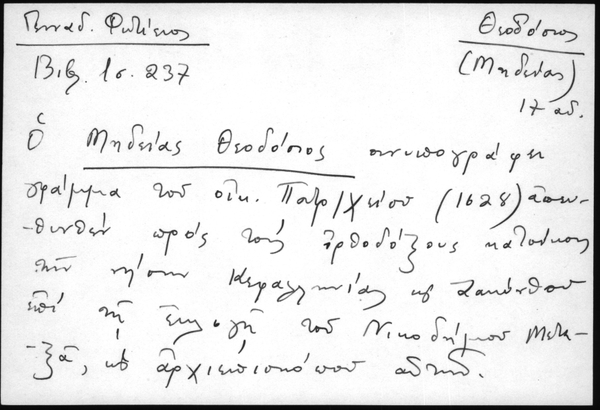 Γενναδ. Φωτίειος
Βιβ. 1σ. 237
Θεοδόσιος
(Μηδείας)
17 αι.
Ὁ Μηδείας Θεοδόσιος συνυπογράφει
γράμμα τοῦ οἰκ. Πατρ/χείου (1628) ἀπευ-
-θυνθέν πρός τούς ὀρθοδόξους κατοίκους
τῶν νήσων Κεφαλληνίας κ Ζακύνθου
ἐπί τῇ ἐκλογῇ τοῦ Νικοδήμου Μετα-
-ξᾶ, ὡς ἀρχιεπισκόπου αὐτῶν.